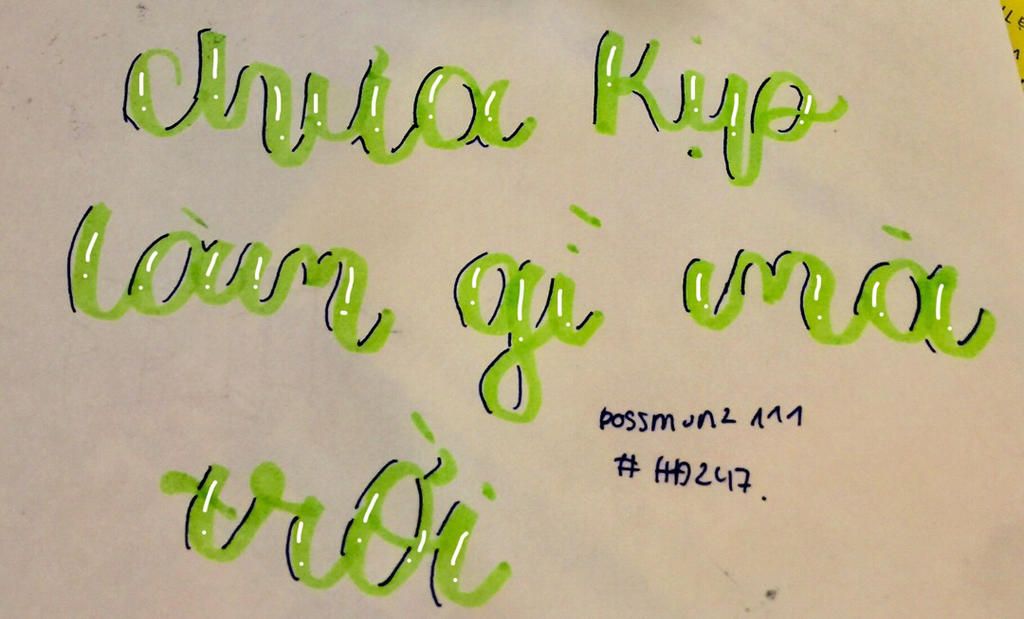 chưa Kịp
làm gì mà
trời
possmunz 111
# HĐ247.